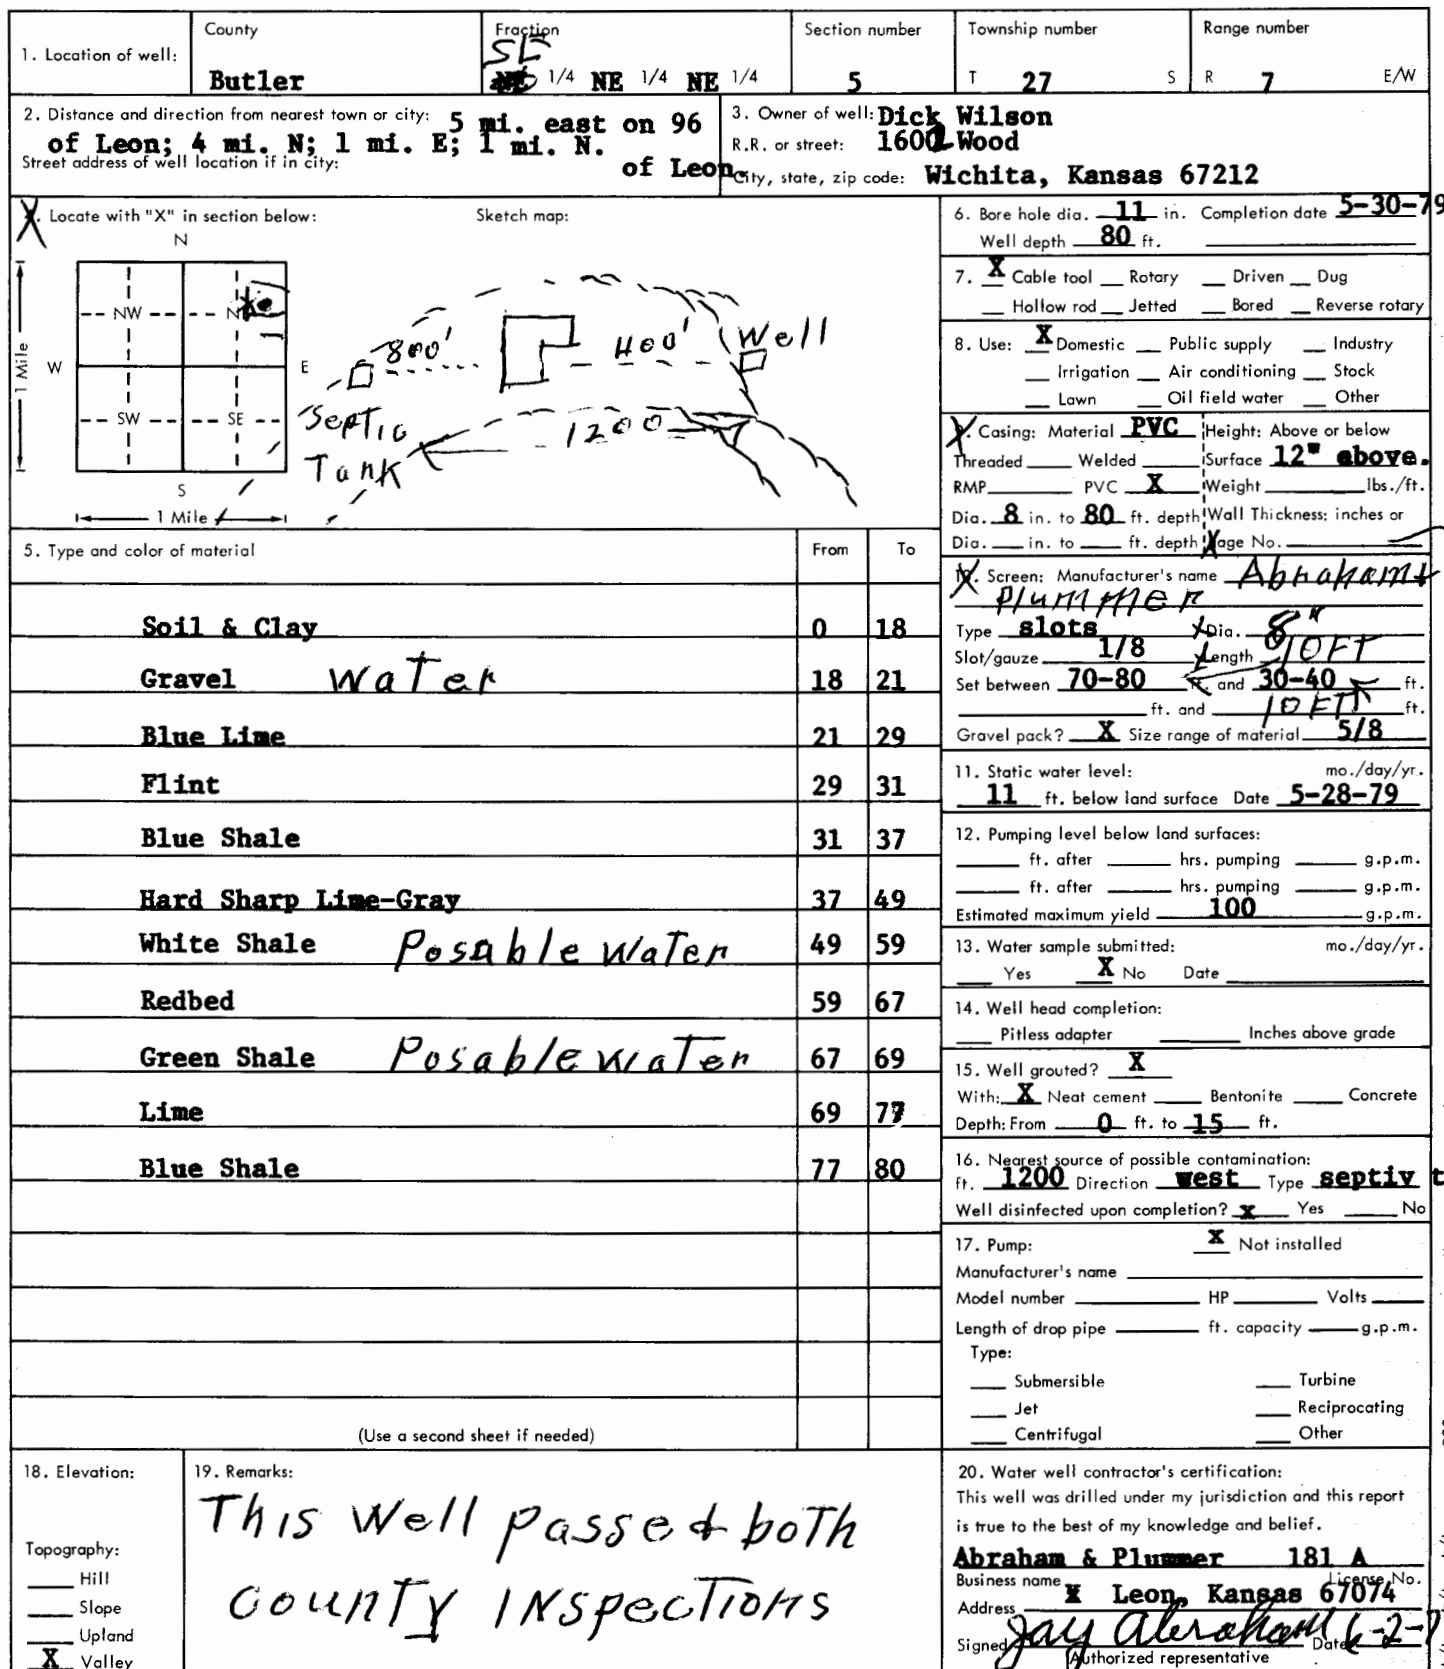 County Fraction Section number Township number Range number
1. Location of well: SE
Butler 1/4 NE 1/4 NE 1/4 5 T 27 S R 7 E/W
2. Distance and direction from nearest town or city: 5 mi. east on 96
of Leon; 4 mi. N; 1 mi. E; 1 mi. N.
of Leon.
Street address of well location if in city:
3. Owner of well: Dick Wilson
R.R. or street: 1602 Wood
City, state, zip code: Wichita, Kansas 67212
Locate with "X" in section below: Sketch map:
N
NW
W E
SW SE
S
1 Mile
1 Mile
800' 400' Well
Septic
Tank
1200
6. Bore hole dia. 11 in. Completion date 5-30-79
Well depth 80 ft.
7. X Cable tool Rotary Driven Dug
Hollow rod Jetted Bored Reverse rotary
8. Use: X Domestic Public supply Industry
Irrigation Air conditioning Stock
Lawn Oil field water Other
9. Casing: Material PVC Height: Above or below
Threaded Welded Surface 12" above.
RMP PVC X Weight lbs./ft.
Dia. 8 in. to 80 ft. depth Wall Thickness: inches or
Dia. in. to ft. depth gage No.
10. Screen: Manufacturer's name Abraham +
Plummer
Type slots Dia. 8"
Slot/gauze 1/8 Length 10FT
Set between 70-80 ft. and 30-40 ft.
ft. and 10 FT ft.
Gravel pack? X Size range of material 5/8
11. Static water level: mo./day/yr.
11 ft. below land surface Date 5-28-79
12. Pumping level below land surfaces:
ft. after hrs. pumping g.p.m.
ft. after hrs. pumping g.p.m.
Estimated maximum yield 100 g.p.m.
13. Water sample submitted: mo./day/yr.
Yes X No Date
14. Well head completion:
Pitless adapter Inches above grade
15. Well grouted? X
With: X Neat cement Bentonite Concrete
Depth: From 0 ft. to 15 ft.
16. Nearest source of possible contamination:
ft. 1200 Direction west Type septiv t
Well disinfected upon completion? x Yes No
17. Pump: X Not installed
Manufacturer's name
Model number HP Volts
Length of drop pipe ft. capacity g.p.m.
Type:
Submersible Turbine
Jet Reciprocating
Centrifugal Other
5. Type and color of material From To
Soil & Clay 0 18
Gravel Water 18 21
Blue Lime 21 29
Flint 29 31
Blue Shale 31 37
Hard Sharp Lime-Gray 37 49
White Shale Posable Water 49 59
Redbed 59 67
Green Shale Posable water 67 69
Lime 69 77
Blue Shale 77 80
(Use a second sheet if needed)
18. Elevation:
Topography:
Hill
Slope
Upland
X Valley
19. Remarks:
This Well passed both
County Inspections
20. Water well contractor's certification:
This well was drilled under my jurisdiction and this report
is true to the best of my knowledge and belief.
Abraham & Plummer 181 A
Business name License No.
Address X Leon, Kansas 67074
Signed Jay Abraham Date 6-2-7
Authorized representative